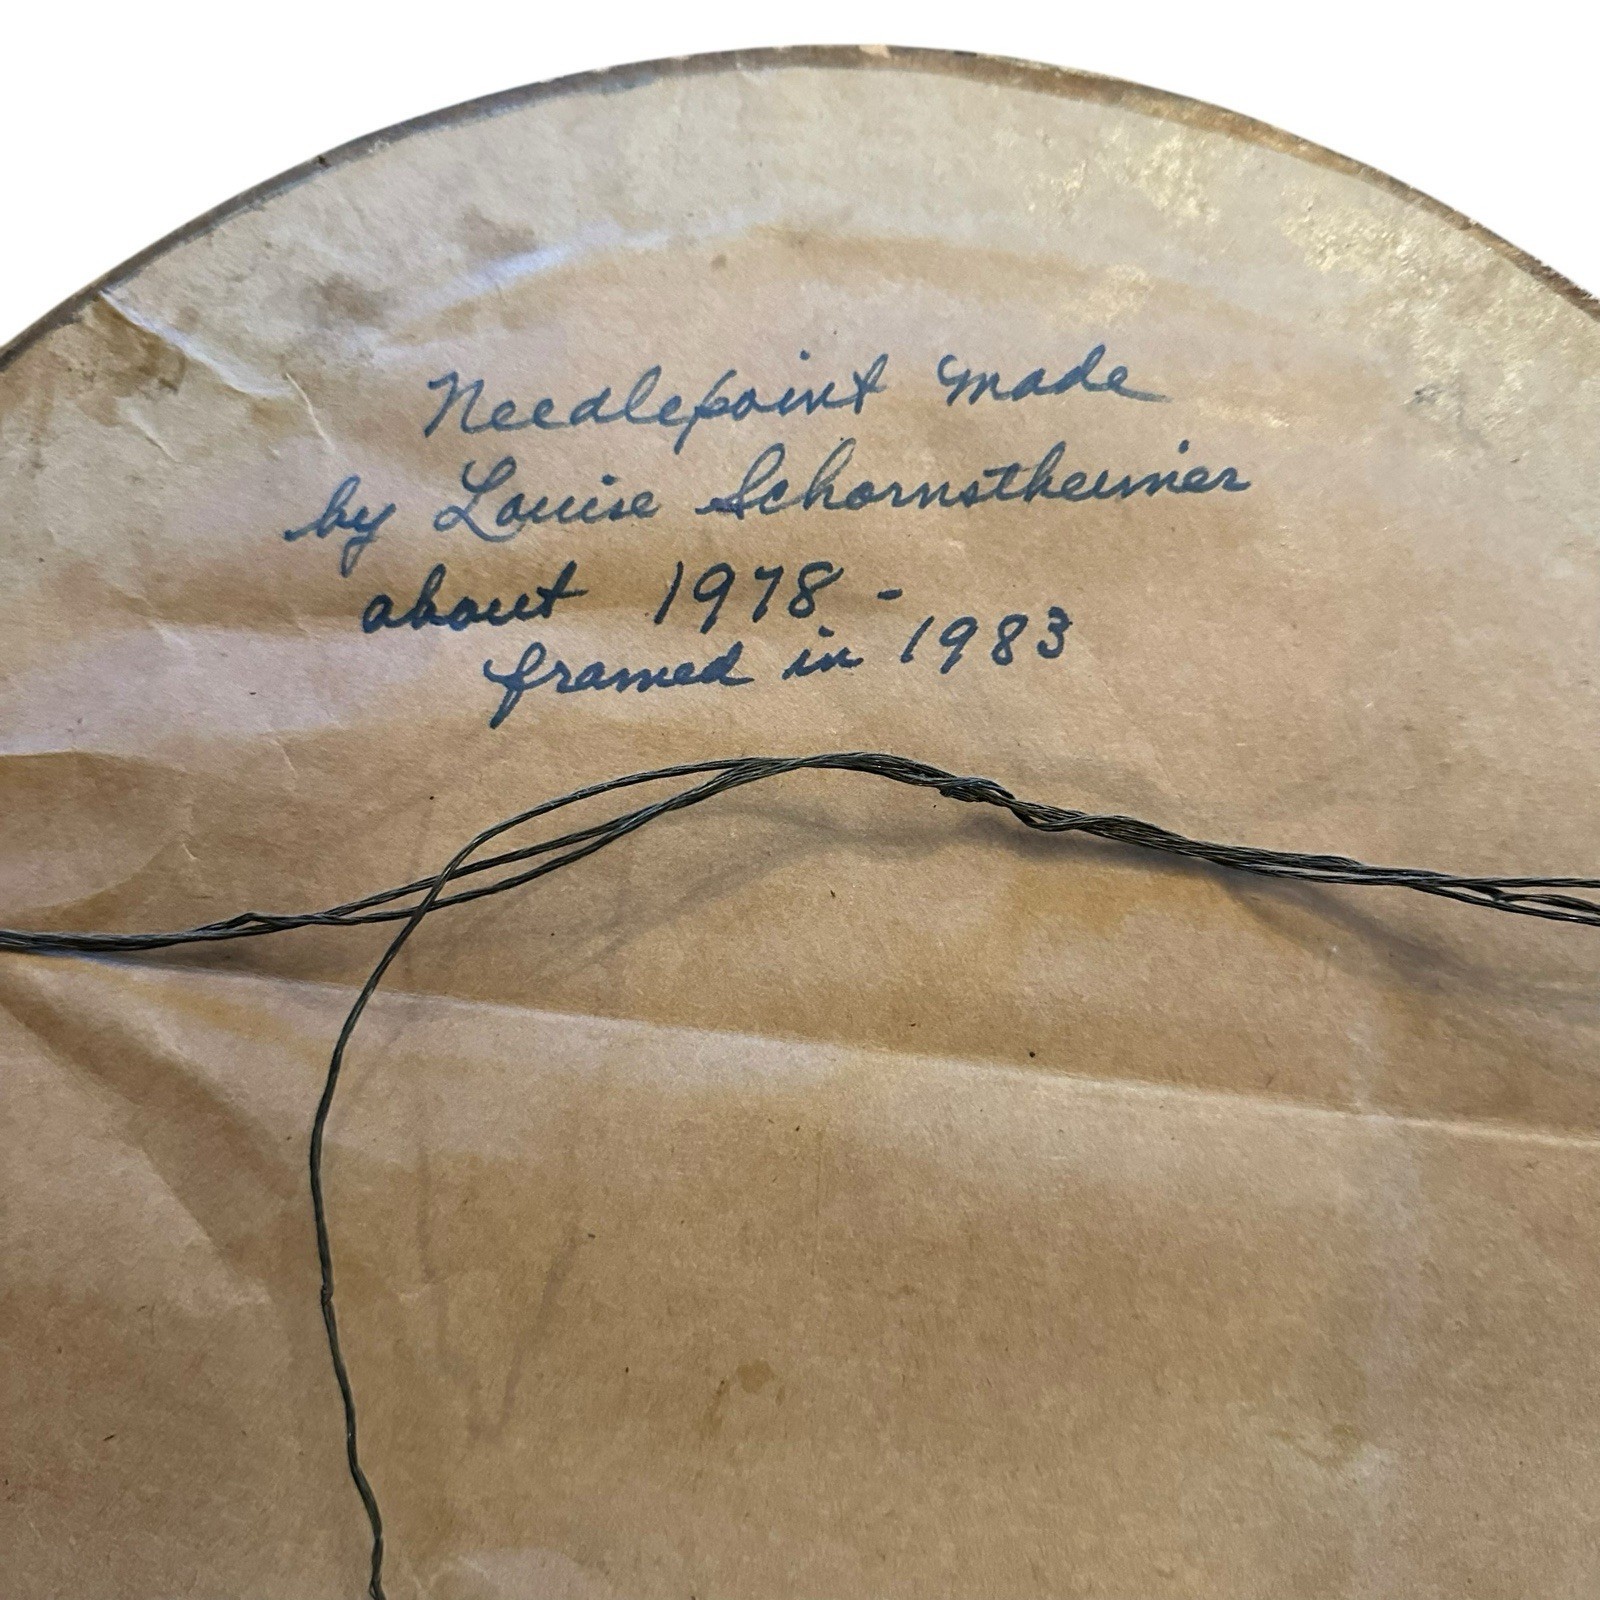 Needlepoint made
by Louise Schornstheimer
about 1978 -
framed in 1983